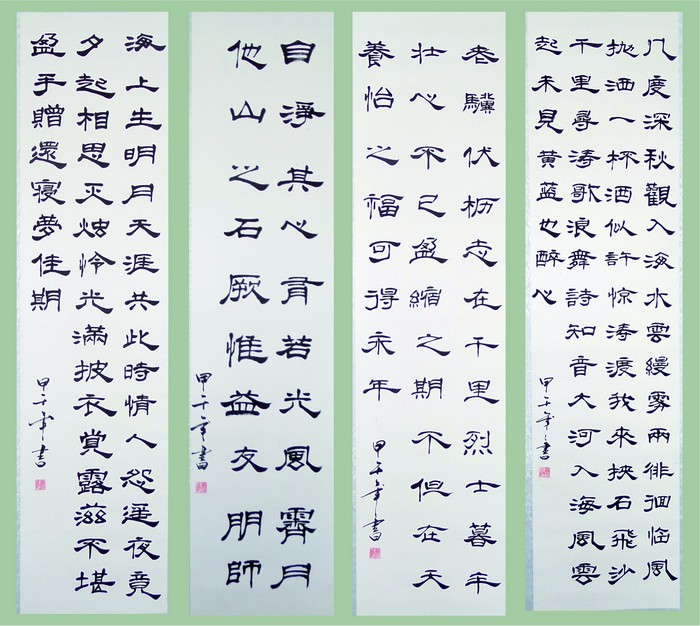 几度深秋觀入海水雲縵雾兩徘徊临風
抛洒一杯酒似許惊涛渡我來挾石飛沙
千里尋涛歌浪舞詩知音大河入海風雲
起未見黄蓝也醉心
甲午年書
老驥伏枥志在千里烈士暮年
壮心不已盈縮之期不但在天
養怡之福可得永年
甲午年書
自淨其心有若光風霽月
他山之石厥惟益友朋師
甲午年書
海上生明月天涯共此時情人怨遥夜竟
夕起相思灭烛怜光滿披衣覺露滋不堪
盈手贈還寝夢佳期
甲午年書